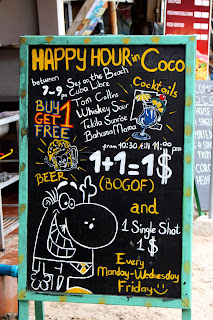 HAPPY HOUR in COCO
between
7-9 pm
Sex on the Beach
Cuba Libre
Tom Collins
Whiskey Sour
Tekila Sunrise
Bahama Mama
Cocktails
BUY 1
GET
FREE
from 10:30 till 11:00 pm
1+1=1$
(BOGOF)
BEER
and
1 Single Shot
1$
Every
Monday-Wednesday
Friday